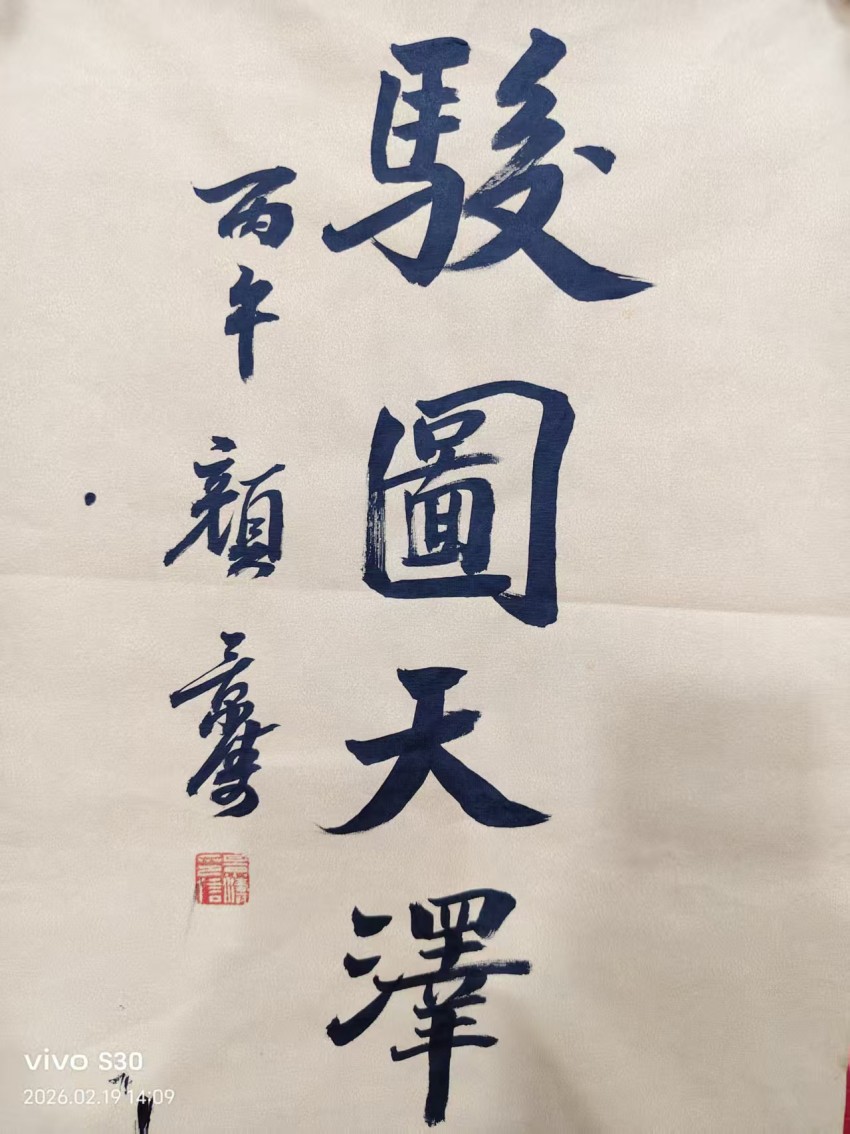 駿圖天澤
丙午 顏景夀
vivo S30
2026.02.19 14:09